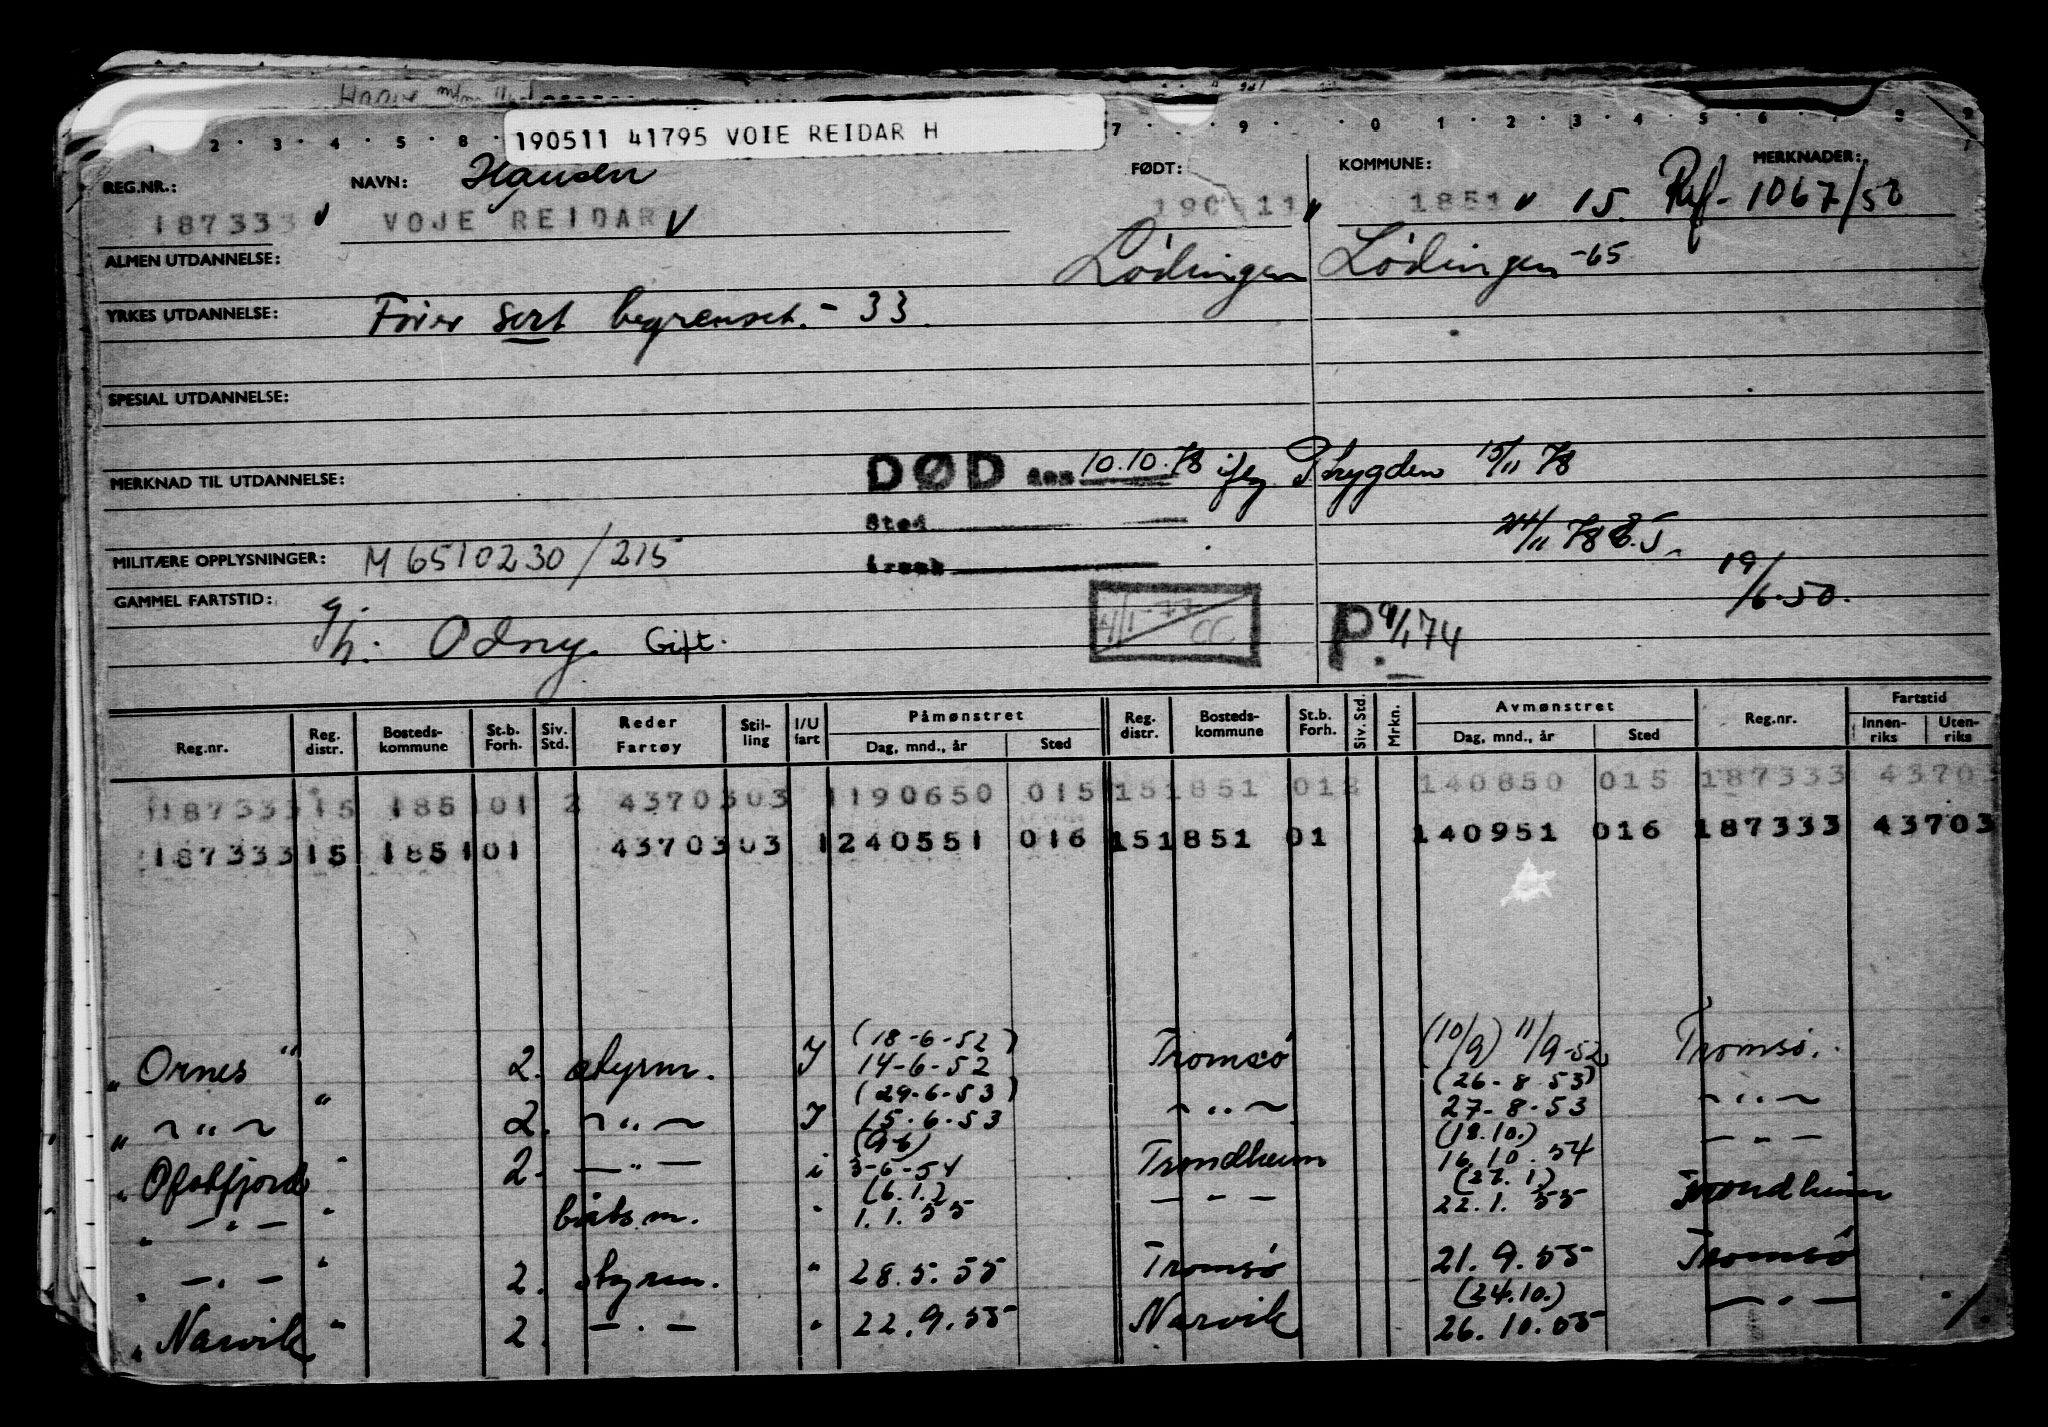 190511 41795 VOIE REIDAR H
REG.NR.: NAVN: Hansen FØDT: KOMMUNE: MERKNADER:
187333 v VOJE REIDAR v 190511 1851 v 15. Ref- 1067/50
ALMEN UTDANNELSE: Lødingen Lødingen -65
YRKES UTDANNELSE: sert begrenset. - 33.
SPESIAL UTDANNELSE:
MERKNAD TIL UTDANNELSE: DØD den 10.10.78 iflg Trygden 15/11 78
Sted
24/11 78
MILITÆRE OPPLYSNINGER: M 6510230/215 19/6-50.
GAMMEL FARTSTID:
g/h. Odny. Gift. 4/1-77 CC P. 9/1 74
Reg.nr. Reg. distr. Bosteds-kommune St.b. Forh. Siv. Std. Reder Fartøy Stil-ling I/U fart Påmønstret Dag, mnd., år Sted Reg. distr. Bosteds-kommune St.b. Forh. Siv. Std. Mrkn. Avmønstret Dag, mnd., år Sted Reg.nr. Fartstid Innen-riks Uten-riks
187333 15 1851 01 2 43703 03 1 190650 015 15 1851 01 2 140850 015 187333 43703
187333 15 1851 01 43703 03 1 240551 016 15 1851 01 140951 016 187333 43703
(18-6-52) (10/9) 11/9-52
" Ornes " 2. styrm. I 14-6-52 Tromsø Tromsø.
(29-6-53) (26-8-53)
" ~ " ~ " 2. ~ " ~ I 15.6.53 ~ " ~ 27-8-53 ~ " ~
(9-6) (18.10.)
" Ofotfjord " 2. — " — i 3-6-54 Trondheim 16.10.54 — " —
(6.1.) (27.1)
" — " — " båtsm. " 1.1.55 — " — 22.1.55 Trondheim
" — " — " 2. styrm. " 28.5.55 Tromsø 21.9.55 Tromsø
(24.10.)
" Narvik " 2. — " — " 22.9.55 Narvik 26.10.55 — " —